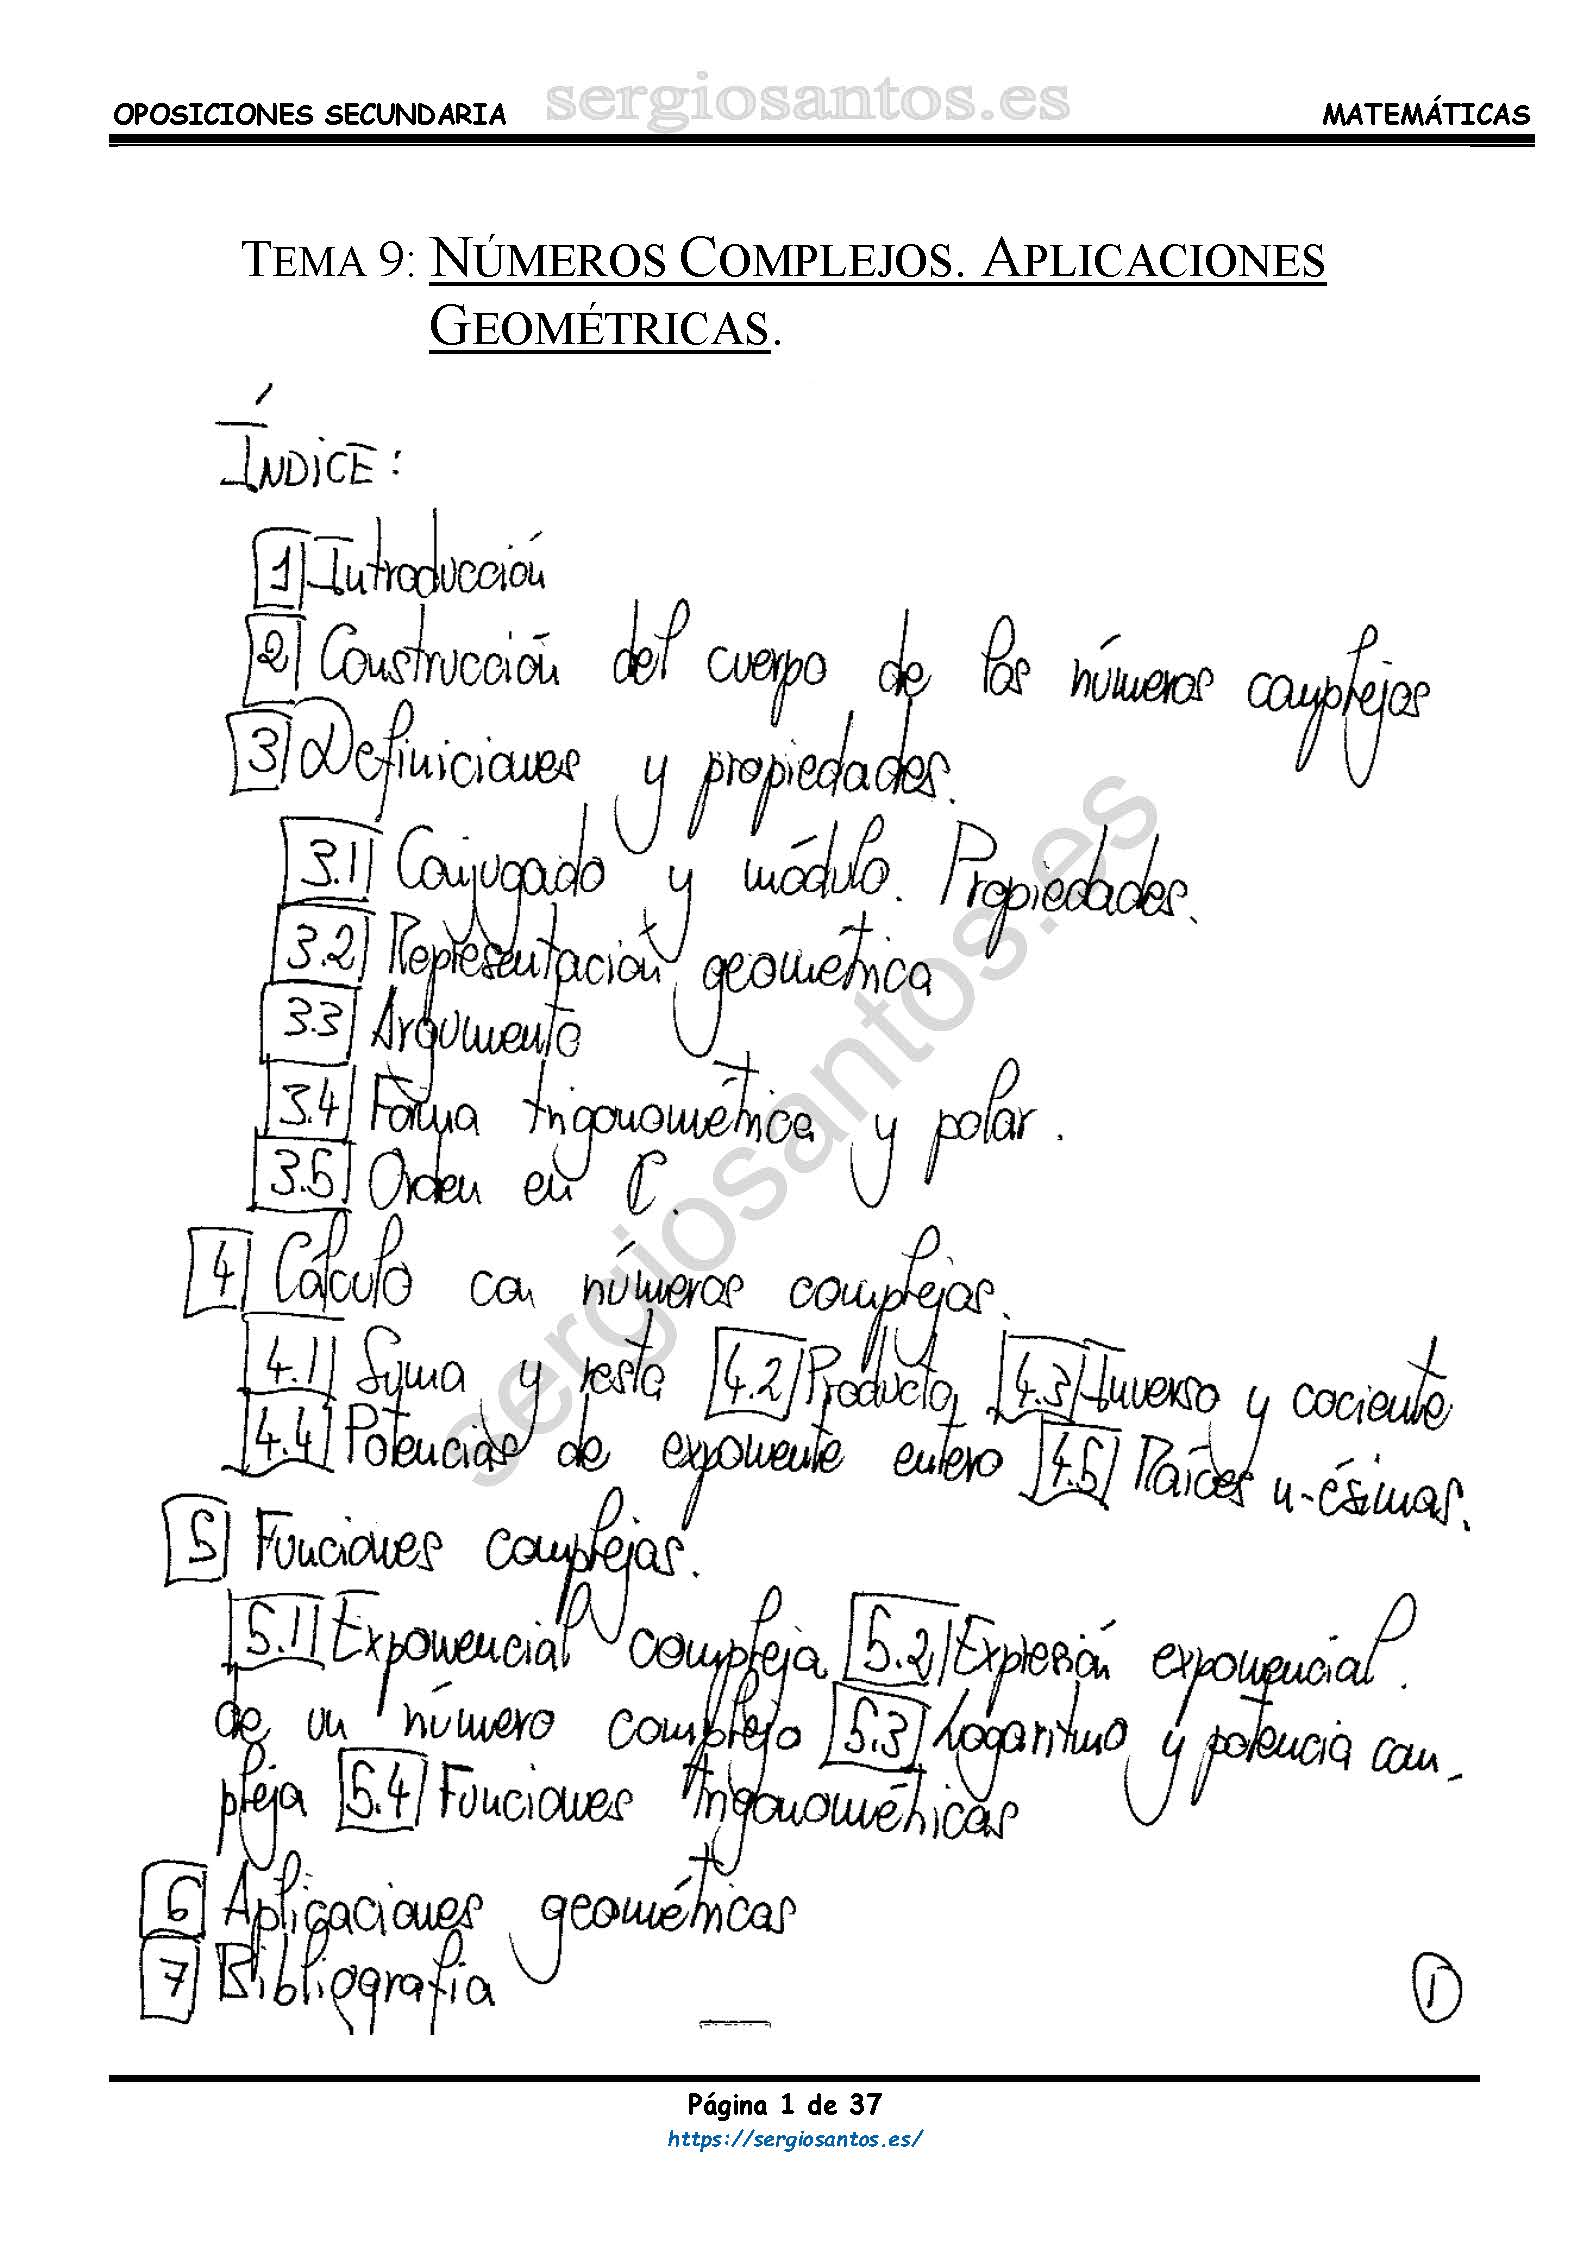 sergiosantos.es
OPOSICIONES SECUNDARIA MATEMÁTICAS
TEMA 9: NÚMEROS COMPLEJOS. APLICACIONES
GEOMÉTRICAS.
ÍNDICE:
1 Introducción
2 Construcción del cuerpo de los números complejos
3 Definiciones y propiedades.
3.1 Conjugado y módulo. Propiedades.
3.2 Representación geométrica
3.3 Argumento
3.4 Forma trigonométrica y polar.
3.5 Orden en ℂ.
4 Cálculo con números complejos.
4.1 Suma y resta 4.2 Producto 4.3 Inverso y cociente
4.4 Potencias de exponente entero 4.5 Raíces n-ésimas.
5 Funciones complejas.
5.1 Exponencial compleja 5.2 Expresión exponencial.
de un número complejo 5.3 Logaritmo y potencia com-
pleja 5.4 Funciones trigonométricas
6 Aplicaciones geométricas
7 Bibliografía
1
sergiosantos.es
Página 1 de 37
https://sergiosantos.es/